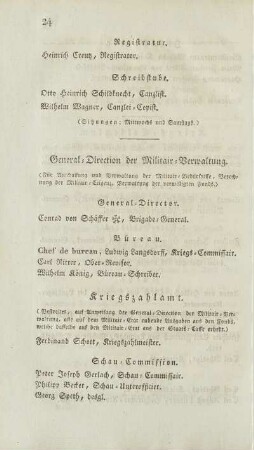 24
Registratur.
Heinrich Creutz, Registrator.
Schreibstube.
Otto Heinrich Schildknecht, Canzlist.
Wilhelm Wagner, Canzlei-Copist.
(Sitzungen: Mittwochs und Samstags.)
General-Direction der Militair-Verwaltung.
(Für Anschaffung und Verwaltung der Militair-Bedürfnisse, Berech-
nung der Militair-Trezay, Verwaltung der bewilligten Fonds.)
General-Director.
Conrad von Schäffer Brigade-General.
Büreau.
Chef de bureau, Ludwig Langsdorff, Kriegs-Commissair.
Carl Ritter, Ober-Revisor.
Wilhelm König, Büreau-Schreiber.
Kriegszahlamt.
(Bestreitet, auf Anweisung der General-Direction der Militair-Ver-
waltung, alle auf dem Militair-Etat ruhende Ausgaben aus den Fonds,
welche deshalb auf den Militair-Etat aus der Staats-Casse
Ferdinand Schott, Kriegszahlmeister.
Schau-Commission.
Peter Joseph Gerlach, Schau-Commissair.
Philipp Becker, Schau-Unterofficier.
Georg Speth, desgl.